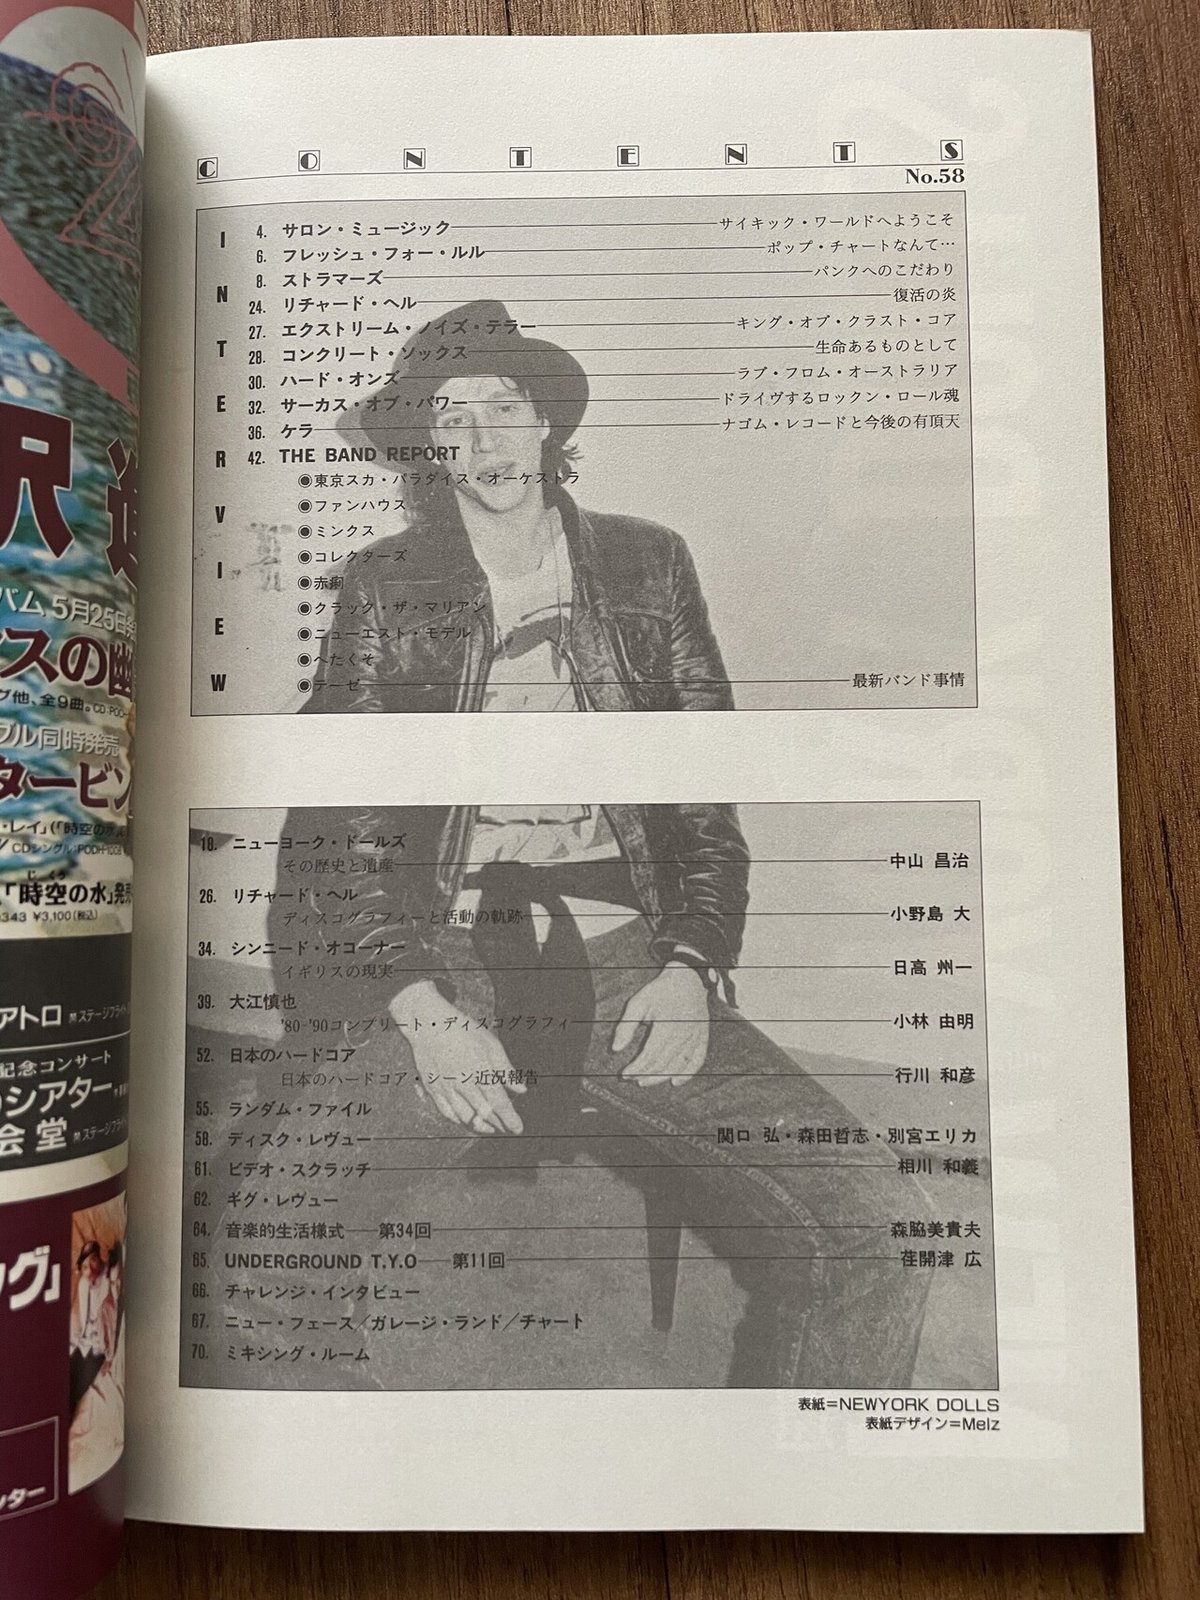 CONTENTS
No.58
INTERVIEW
4. サロン・ミュージック――サイキック・ワールドへようこそ
6. フレッシュ・フォー・ルル――ポップ・チャートなんて…
8. ストラマーズ――パンクへのこだわり
24. リチャード・ヘル――復活の炎
27. エクストリーム・ノイズ・テラー――キング・オブ・クラスト・コア
28. コンクリート・ソックス――生命あるものとして
30. ハード・オンズ――ラブ・フロム・オーストラリア
32. サーカス・オブ・パワー――ドライヴするロックン・ロール魂
36. ケラ――ナゴム・レコードと今後の有頂天
42. THE BAND REPORT
◉東京スカ・パラダイス・オーケストラ
◉ファンハウス
◉ミンクス
◉コレクターズ
◉赤痢
◉クラック・ザ・マリアン
◉ニューエスト・モデル
◉へたくそ
◉テーゼ――最新バンド事情
18. ニューヨーク・ドールズ
その歴史と遺産――中山 昌治
26. リチャード・ヘル
ディスコグラフィーと活動の軌跡――小野島 大
34. シンニード・オコーナー
イギリスの現実――日高 州一
39. 大江慎也
'80-'90コンプリート・ディスコグラフィ――小林 由明
52. 日本のハードコア
日本のハードコア・シーン近況報告――行川 和彦
55. ランダム・ファイル
58. ディスク・レヴュー――関口 弘・森田哲志・別宮エリカ
61. ビデオ・スクラッチ――相川 和義
62. ギグ・レヴュー
64. 音楽的生活様式――第34回――森脇美貴夫
65. UNDERGROUND T.Y.O――第11回――荏開津 広
66. チャレンジ・インタビュー
67. ニュー・フェース/ガレージ・ランド/チャート
70. ミキシング・ルーム
表紙=NEWYORK DOLLS
表紙デザイン=Melz
沢
バム、5月25日
スの幽
グ他、全9曲。
ブル同時発売
タービン
・レイ」(「時空の水」
CDシングル:PODH-1008
じくう
「時空の水」発売
0343 ¥3,100(税込)
アトロ
ステージフライト
記念コンサート
シアター
会堂
ステージフライト
グ」
ンター